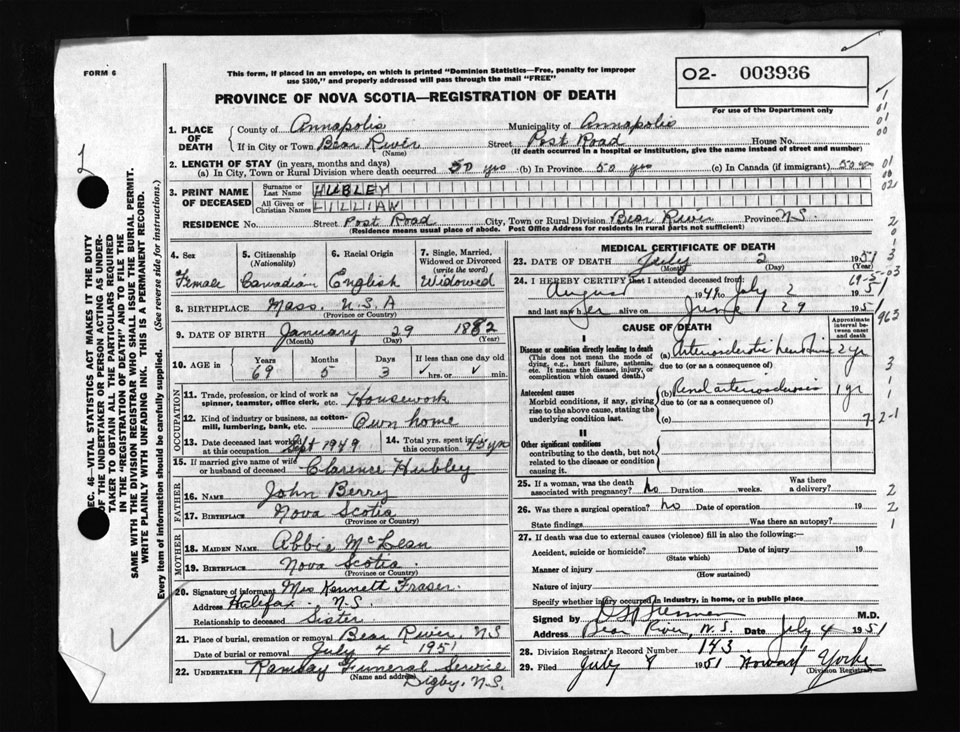 FORM 6
This form, if placed in an envelope, on which is printed "Dominion Statistics—Free, penalty for improper
use $300," and properly addressed will pass through the mail "FREE"
O2- 003936
For use of the Department only
PROVINCE OF NOVA SCOTIA—REGISTRATION OF DEATH
1. PLACE OF DEATH { County of Annapolis Municipality of Annapolis
If in City or Town Bear River (Name) Street Post Road House No.
(If death occurred in a hospital or institution, give the name instead of street and number)
2. LENGTH OF STAY (in years, months and days)
(a) In City, Town or Rural Division where death occurred 50 yrs (b) In Province 50 yrs (c) In Canada (if immigrant) 50 yrs
3. PRINT NAME OF DECEASED { Surname or Last Name HUBLEY
All Given or Christian Names LILLIAN
RESIDENCE No. Street Post Road City, Town or Rural Division Bear River Province N.S.
(Residence means usual place of abode. Post Office Address for residents in rural parts not sufficient)
SEC. 46—VITAL STATISTICS ACT MAKES IT THE DUTY
OF THE UNDERTAKER OR PERSON ACTING AS UNDER-
TAKER TO OBTAIN ALL THE PARTICULARS REQUIRED
IN THE "REGISTRATION OF DEATH" AND TO FILE THE
SAME WITH THE DIVISION REGISTRAR WHO SHALL ISSUE THE BURIAL PERMIT.
WRITE PLAINLY WITH UNFADING INK. THIS IS A PERMANENT RECORD.
Every item of information should be carefully supplied. (See reverse side for instructions.)
4. Sex 5. Citizenship (Nationality) 6. Racial Origin 7. Single, Married, Widowed or Divorced (write the word)
Female Canadian English Widowed
8. BIRTHPLACE Mass. U.S.A
(Province or Country)
9. DATE OF BIRTH January 29 1882
(Month) (Day) (Year)
10. AGE in Years Months Days If less than one day old
69 5 3 hrs. or min.
OCCUPATION
11. Trade, profession, or kind of work as spinner, teamster, office clerk, etc. Housework
12. Kind of industry or business, as cotton-mill, lumbering, bank, etc. Own home
13. Date deceased last worked at this occupation Sept 1949 14. Total yrs. spent in this occupation 45 yrs
15. If married give name of wife or husband of deceased Clarence Hubley
FATHER
16. NAME John Berry
17. BIRTHPLACE Nova Scotia
(Province or Country)
MOTHER
18. MAIDEN NAME Abbie McLean
19. BIRTHPLACE Nova Scotia
(Province or Country)
20. Signature of informant Mrs Kennett Fraser.
Address Halifax N.S.
Relationship to deceased Sister
21. Place of burial, cremation or removal Bear River, NS
Date of burial or removal July 4 1951
22. UNDERTAKER Ramsay Funeral Service
(Name and address) Digby, N.S.
MEDICAL CERTIFICATE OF DEATH
23. DATE OF DEATH July 2 1951
(Month) (Day) (Year)
24. I HEREBY CERTIFY that I attended deceased from
August 1941 to July 2 1951
and last saw her alive on June 29 1951
CAUSE OF DEATH
Approximate interval between onset and death
I
Disease or condition directly leading to death (a) Arteriosclerotic 2 yr
(This does not mean the mode of dying, e.g., heart failure, asthenia, etc. It means the disease, injury, or complication which caused death.)
due to (or as a consequence of)
Antecedent causes (b) Renal arteriosclerosis 1 yr
Morbid conditions, if any, giving rise to the above cause, stating the underlying condition last.
due to (or as a consequence of)
(c)
II
Other significant conditions
contributing to the death, but not related to the disease or condition causing it.
25. If a woman, was the death associated with pregnancy? No Duration weeks. Was there a delivery?
26. Was there a surgical operation? No Date of operation 19
State findings Was there an autopsy?
27. If death was due to external causes (violence) fill in also the following:—
Accident, suicide or homicide? Date of injury 19
(State which)
Manner of injury
(How sustained)
Nature of injury
Specify whether injury occurred in industry, in home, or in public place
Signed by M.D.
Address Bear River, N.S. Date July 4 1951
28. Division Registrar's Record Number 143
29. Filed July 8 1951 Howard Yorke
(Division Registrar)